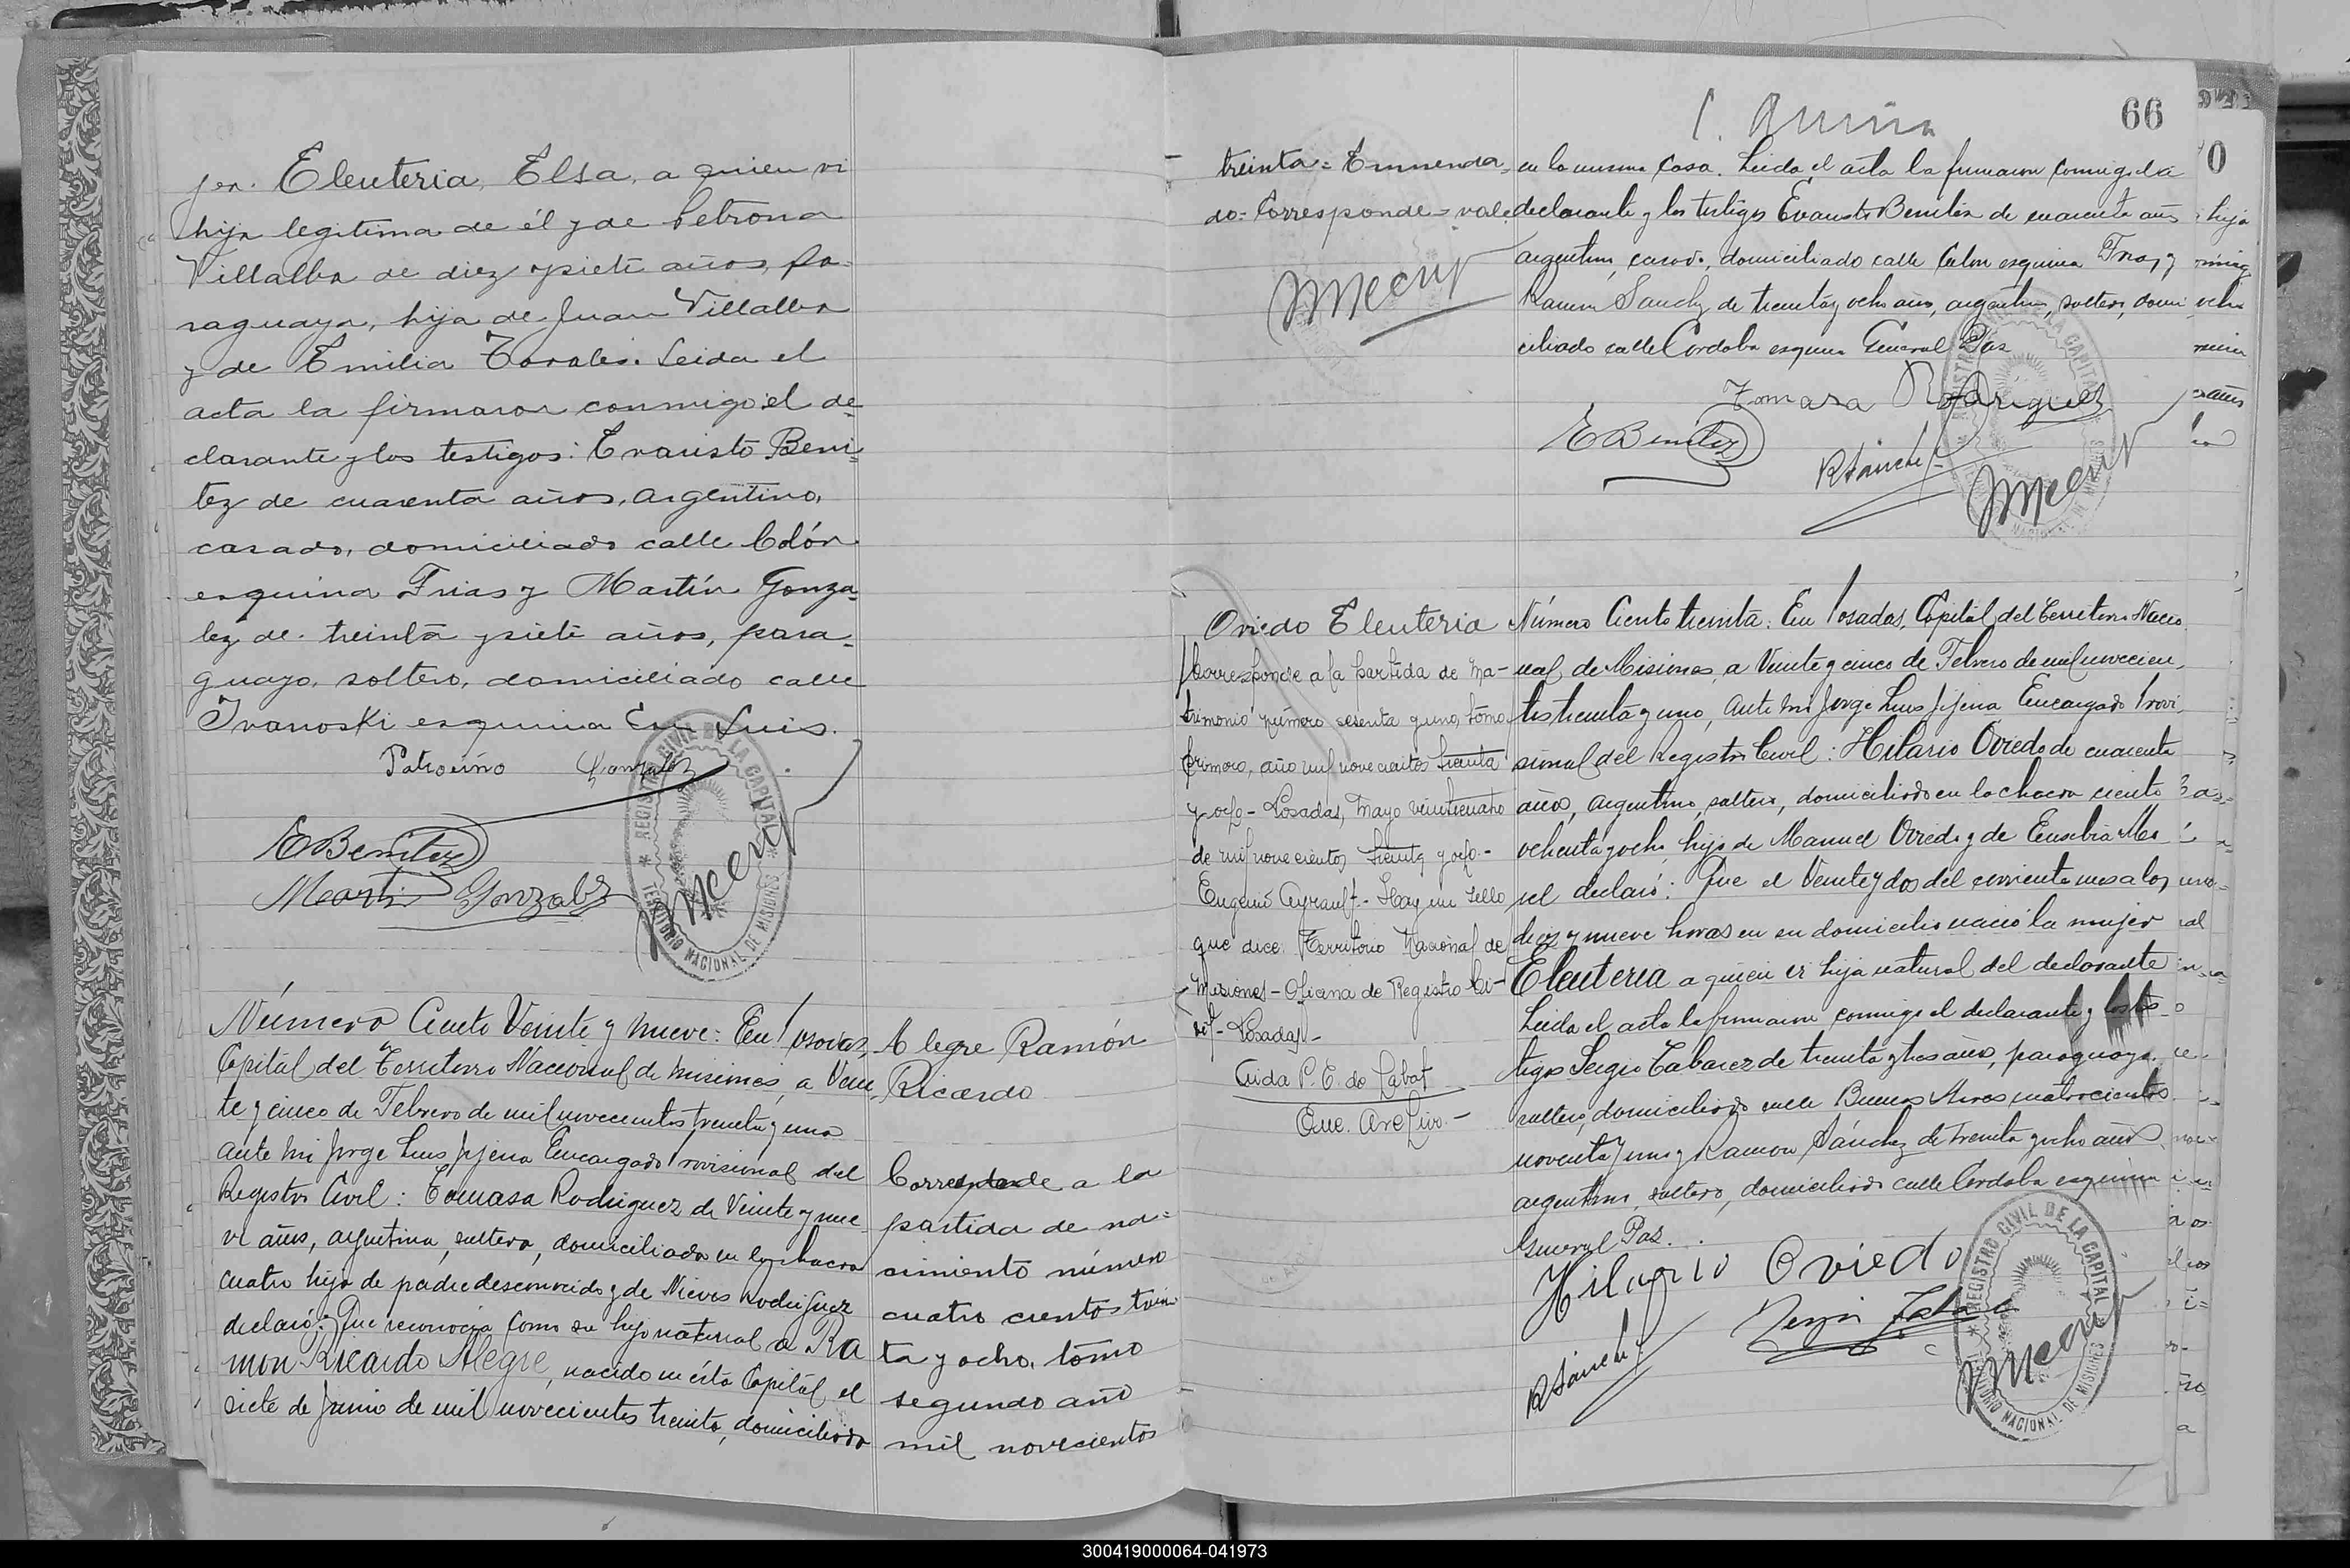 jer. Eleuteria, Elsa, a quien vi
hija legitima de él y de Petrona
Villalba de diez y siete años, pa-
raguaya, hija de Juan Villalba
y de Emilia Torales. Leida el
acta la firmaron conmigo el de-
clarante y los testigos: Evaristo Beni-
tez de cuarenta años, argentino,
casado, domiciliado calle Colón
esquina Frias y Martín Gonza-
lez de treinta y siete años, para-
guayo, soltero, domiciliado calle
Ivanoski esquina San Luis.
Patrocino Gonzalez
EBenitez
Martin Gonzalez
REGISTRO CIVIL DE LA CAPITAL
TERRITORIO NACIONAL DE MISIONES
Número Ciento Veinte y nueve: En Posadas,
Capital del Territorio Nacional de Misiones, a Vein-
te y cinco de Febrero de mil novecientos treinta y uno
ante mi Jorge Luis Jejena Encargado Provisional del
Registro Civil: Tomasa Rodriguez de Veinte y nue-
ve años, argentina, soltera, domiciliada en la chacra
cuatro hija de padre desconocido y de Nieves Rodriguez
declaró: Que reconocia como su hijo natural a Ra
mon Ricardo Alegre, nacido en ésta Capital el
siete de Junio de mil novecientos treinta, domiciliado
Alegre Ramón
Ricardo
Corresponde a la
partida de na-
cimiento número
cuatro cientos trein
ta y ocho, tomo
segundo año
mil novecientos
66
treinta = Enmenda-
do = Corresponde = vale
en la misma casa. Leida el acta la firmaron conmigo la
declarante y los testigos Evaristo Benitez de cuarenta años
argentino, casado, domiciliado calle Colon esquina Frias, y
Ramon Sanchez de treinta y ocho años, argentino, soltero, domi
ciliado calle Cordoba esquina General Paz
Tomasa Rodriguez
EBenitez
RSanchez
Oviedo Eleuteria
Corresponde a la partida de ma-
trimonio número sesenta y uno, tomo
primero, año mil novecientos treinta
y ocho - Posadas, Mayo veinticuatro
de mil novecientos treinta y ocho.-
Eugenio Ayrault.- Hay un sello
que dice: Territorio Nacional de
Misiones - Oficina de Registro Ci-
vil - Posadas -
Aida P. E. de Labat
Enc. Archivo.-
Número Ciento treinta: En Posadas, Capital del Territorio Nacio-
nal de Misiones, a Veinte y cinco de Febrero de mil novecien-
tos treinta y uno, ante mi Jorge Luis Jejena Encargado Provi-
sional del Registro Civil: Hilario Oviedo de cuarenta
años, argentino, soltero, domiciliado en la chacra ciento
ochenta y ocho, hijo de Manuel Oviedo y de Eusebia
declaró: Que el Veinte y dos del corriente mes a las
diez y nueve horas en su domicilio nació la mujer
Eleuteria a quien vi hija natural del declarante
Leida el acta la firmaron conmigo el declarante y los tes-
tigos Sergio Tabarez de treinta y tres años, paraguayo
soltero, domiciliado calle Buenos Aires cuatrocientos
noventa y uno y Ramon Sánchez de treinta y ocho años
argentino, soltero, domiciliado calle Cordoba esquina
General Paz.
Hilario Oviedo
RSanchez
REGISTRO CIVIL DE LA CAPITAL
TERRITORIO NACIONAL DE MISIONES
300419000064-041973